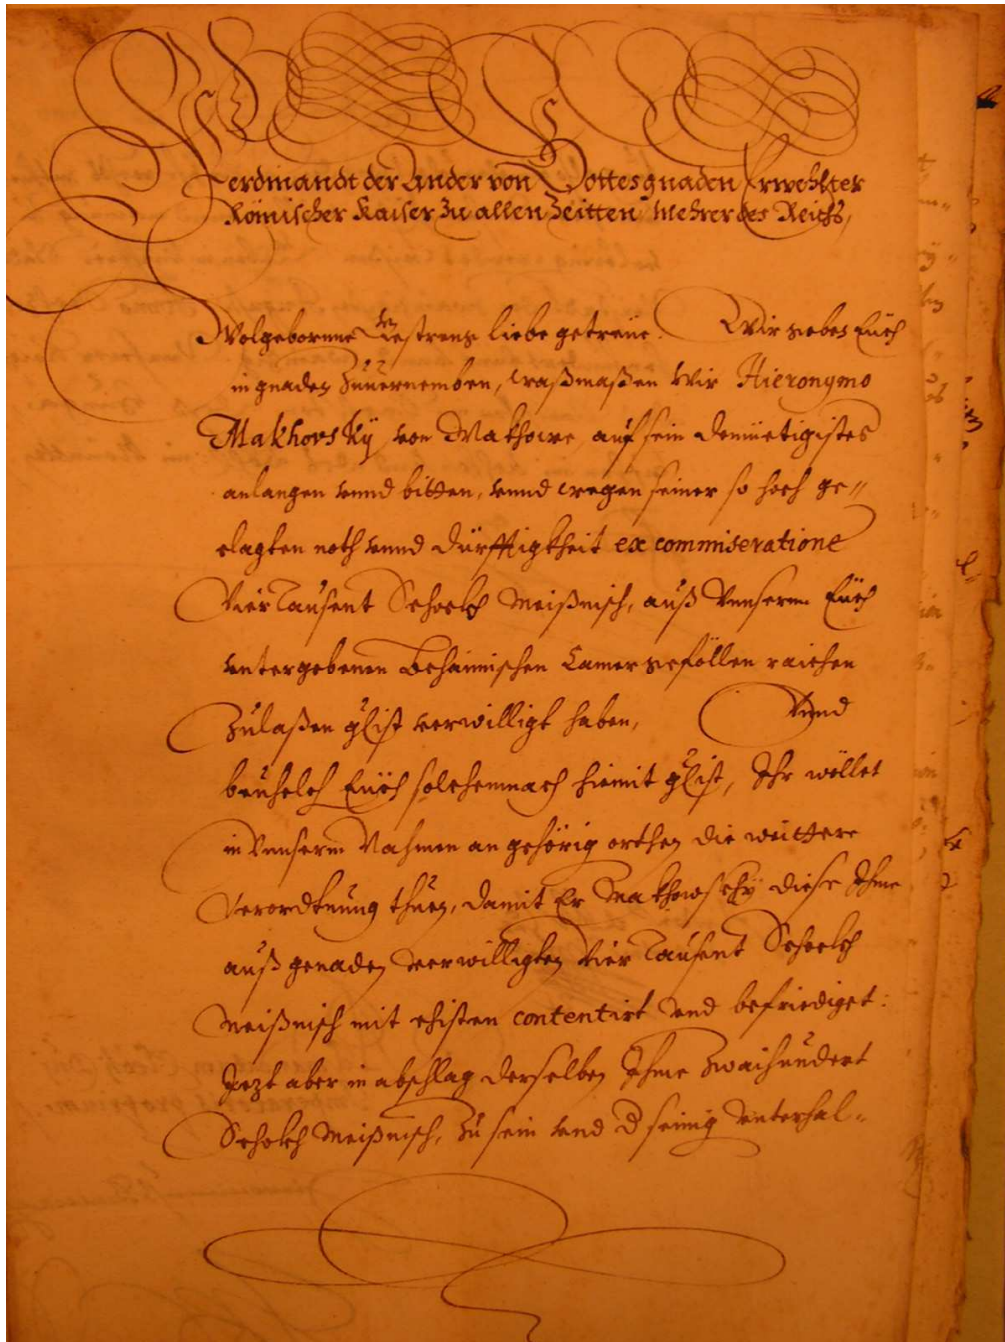 Ferdinandt der Ander von Gottes gnaden Erwehlter
Römischer Kaiser zu allen Zeitten Mehrer des Reichs,
Wolgeborrne Gestrenge liebe getreue. Wir geben Euch
in gnaden zuuernemben, wasmaßen Wir Hieronymo
Makhorskÿ von Makhowe auf sein demüetigistes
anlangen vnnd bitten, vnnd wegen seiner so hoch ge-
clagten noth vnnd dürfftigkheit ex commiseratione
Vier Tausent Schockh Meißnisch, auß Vnnserm Euch
vntergebenen Behaimischen Camergefällen raichen
zulaßen gdist verwilligt haben, Vnnd
beuhelch Euch solchemnach hiemit gdist, Ihr wöllet
in Vnnserm Nahmen an gehörig orthen die weittere
Verordtnung thuen, damit Er Makhowschÿ diese Ihme
auß genaden verwilligten Vier Tausent Schockh
Meißnisch mit ehisten contentirt vnd befriediget:
Jezt aber in abschlag derselben Ihme Zwaihundert
Schokh Meißnisch, zu sein vnd d seinig vnterhal-